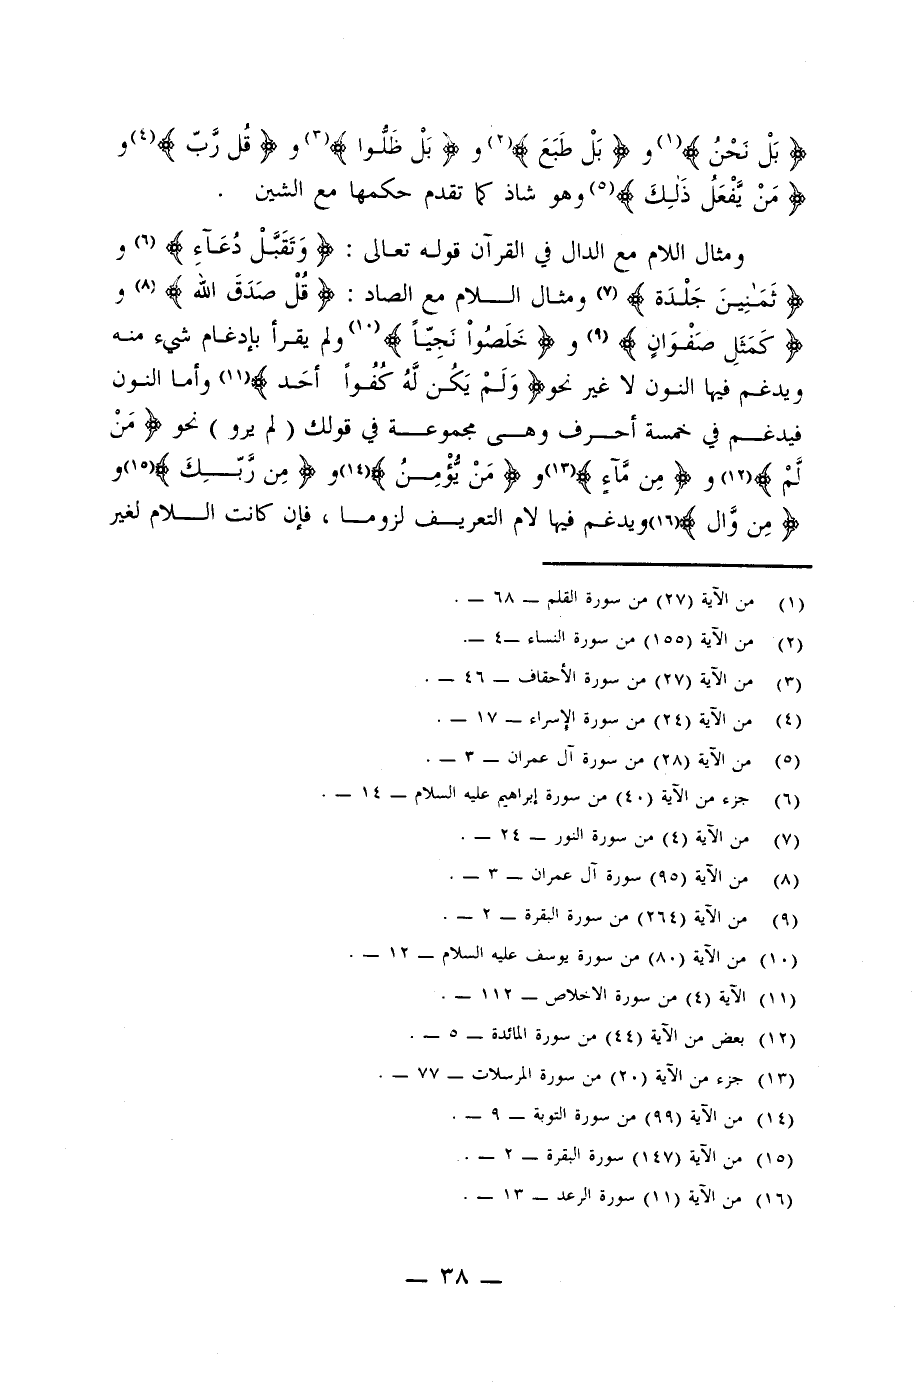 ﴿ بَلْ نَحْنُ ﴾(١) و ﴿ بَلْ طَبَعَ ﴾(٢) و ﴿ بَلْ ظَلُّوا ﴾(٣) و ﴿ قُل رَّبّ ﴾(٤) و
﴿ مَنْ يَّفْعَلُ ذَلِكَ ﴾(٥) وهو شاذ كما تقدم حكمها مع الشين .
ومثال اللام مع الدال في القرآن قوله تعالى : ﴿ وَتَقَبَّلْ دُعَآءِ ﴾ (٦) و
﴿ ثَمَٰنِينَ جَلْدَة ﴾ (٧) ومثال الــلام مع الصاد : ﴿ قُلْ صَدَقَ الله ﴾ (٨) و
﴿ كَمَثَلِ صَفْوَانٍ ﴾ (٩) و ﴿ خَلَصُواْ نَجِيّاً ﴾(١٠) ولم يقرأ بإدغام شيء منه
ويدغم فيها النون لا غير نحو﴿ وَلَمْ يَكُن لَّهُ كُفُواً أحَد ﴾(١١) وأما النون
فيدغــم في خمسة أحــرف وهــى مجموعــة في قولك ( لم يرو ) نحو ﴿ مَنْ
لَّمْ ﴾(١٢) و ﴿ مِن مَّآءٍ ﴾(١٣)و ﴿ مَنْ يُّؤْمِــنُ ﴾(١٤)و ﴿ مِن رَّبِّــكَ ﴾(١٥)و
﴿ مِن وَّال ﴾(١٦)ويدغــم فيها لام التعريــف لزومــا ، فإن كانت الــلام لغير
(١) من الآية (٢٧) من سورة القلم — ٦٨ — .
(٢) من الآية (١٥٥) من سورة النساء —٤ —.
(٣) من الآية (٢٧) من سورة الأحقاف — ٤٦ — .
(٤) من الآية (٢٤) من سورة الإسراء — ١٧ — .
(٥) من الآية (٢٨) من سورة آل عمران — ٣ — .
(٦) جزء من الآية (٤٠) من سورة إبراهيم عليه السلام — ١٤ — .
(٧) من الآية (٤) من سورة النور — ٢٤ — .
(٨) من الآية (٩٥) سورة آل عمران — ٣ — .
(٩) من الآية (٢٦٤) من سورة البقرة — ٢ — .
(١٠) من الآية (٨٠) من سورة يوسف عليه السلام — ١٢ — .
(١١) الآية (٤) من سورة الاخلاص — ١١٢ — .
(١٢) بعض من الآية (٤٤) من سورة المائدة — ٥ — .
(١٣) جزء من الآية (٢٠) من سورة المرسلات — ٧٧ — .
(١٤) من الآية (٩٩) من سورة التوبة — ٩ — .
(١٥) من الآية (١٤٧) سورة البقرة — ٢ — .
(١٦) من الآية (١١) سورة الرعد — ١٣ — .
— ٣٨ —